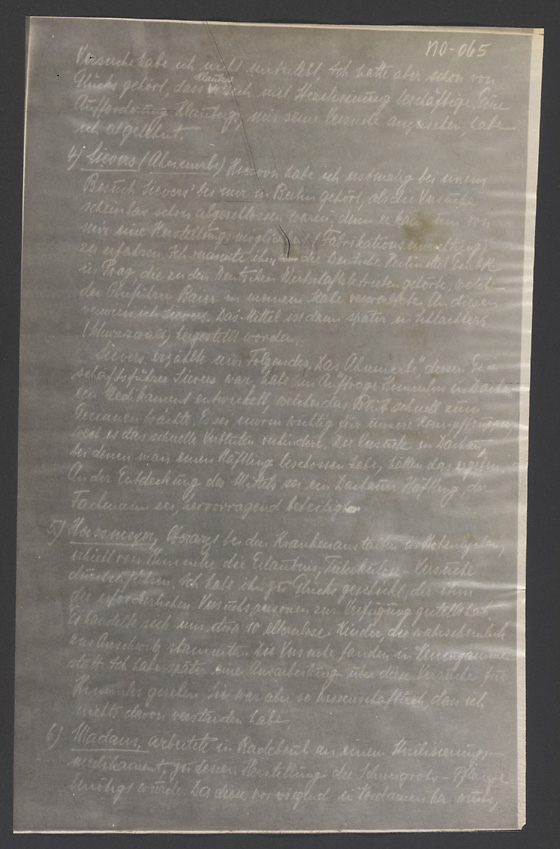 NO-065
Versuche habe ich nicht miterlebt. Ich hatte aber schon von
Glücks gehört, dass Clauberg sich mit beschäftige. Eine
Aufforderung Claubergs, mir seine Versuche anzusehen, habe
ich abgelehnt.
4) Sievers (Ahnenerbe) Hiervon habe ich erstmalig bei einem
Besuch Sievers' bei mir in Berlin gehört, als die Versuche
scheinbar schon abgeschlossen waren; denn er kam, um von
mir eine Herstellungsmöglichkeit
zu erfahren. Ich nannte ihm die Deutsche Heilmittel GmbH
in Prag, die zu den Deutschen Wirtschaftsbetrieben gehörte, welche
der Obf. Baier in meinem Stabe verwaltete. An diesen
verwies ich Sievers. Das Mittel ist dann später in Schlachters
(Schwarzwald) hergestellt worden.
Sievers erzählte mir Folgendes: Das "Ahnenerbe", dessen Ge-
schäftsführer Sievers war, habe im Auftrage Himmlers in Dachau
ein Medikament entwickelt, welches das Blut schnell zum
Gerinnen brächte. Es sei enorm wichtig für unsere Kampftruppen
weil es das schnelle Verbluten verhindere. Die Versuche in Dachau,
bei denen man einen Häftling beschossen habe, hätten das ergeben.
An der Entdeckung des Mittels sei ein Dachauer Häftling, der
Fachmann sei, hervorragend beteiligt.
5) Heissmeyer, Oberarzt bei den Krankenanstalten in Hohenlychen,
erhielt von Himmler die Erlaubnis, Tuberkulose-Versuche
durchzuführen. Ich habe ihn zu Glücks geschickt, der ihm
die erforderlichen Versuchspersonen zur Verfügung gestellt hat.
Es handelte sich um etwa 10 elternlose Kinder, die wahrscheinlich
aus Auschwitz stammten. Die Versuche fanden in Neuengamme
statt. Ich habe später eine Ausarbeitung über diese Versuche für
Himmler gesehen, sie war aber so wissenschaftlich, dass ich
nichts davon verstanden habe.
6) Madaus, arbeitete in Radebeul an einem Sterilisierungs-
medikament, zu dessen Herstellung die Schweigrohr-Pflanze
benötigt wurde. Da diese vorwiegend in Nordamerika wuchs,